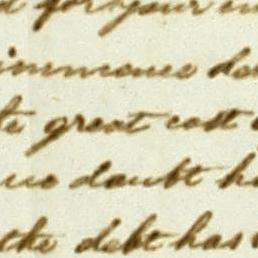 for your
immence de
great cost
no doubt h
the debt has